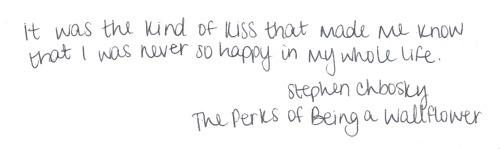 it was the kind of kiss that made me know
that I was never so happy in my whole life.
Stephen Chbosky
The Perks of Being a Wallflower